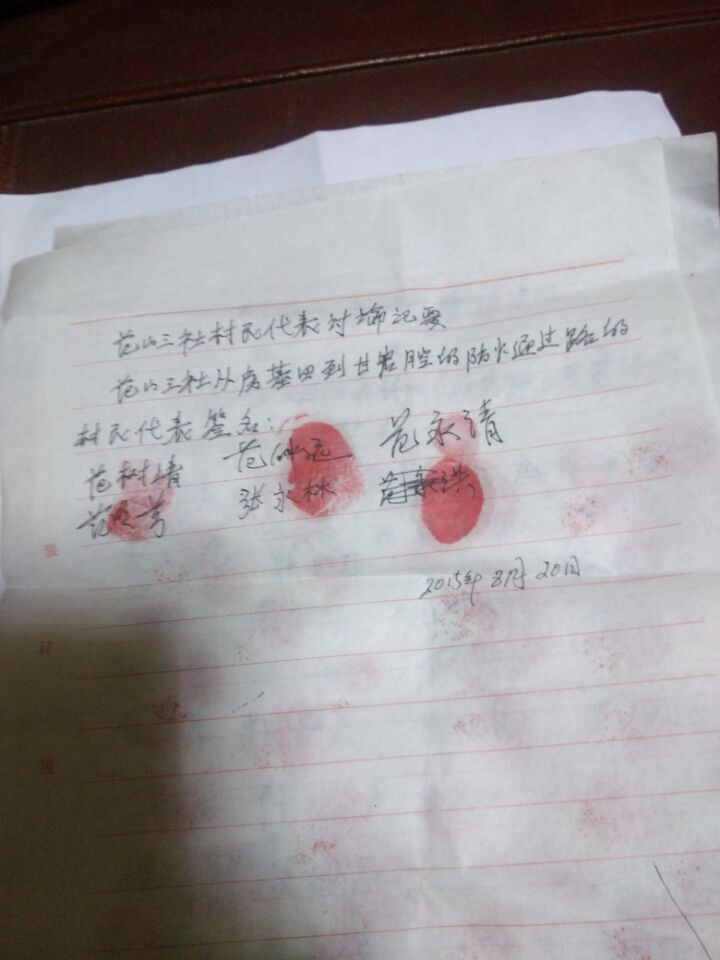 范山三社村民代表讨论记要
范山三社从病基田到甘岩腔的防火通过路的
村民代表签名:
范树清 范 远 范永清
范 芳 张永林 洪
2015年8月20日
装
订
线